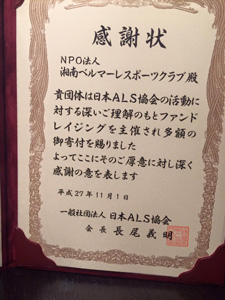 感謝状
NPO法人
湘南ベルマーレスポーツクラブ 殿
貴団体は日本ALS協会の活動に
対する深いご理解のもとファンド
レイジングを主催され多額の
御寄付を賜りました
よってここにそのご厚意に対し深く
感謝の意を表します
平成27年11月1日
一般社団法人 日本ALS協会
会長 長尾義明